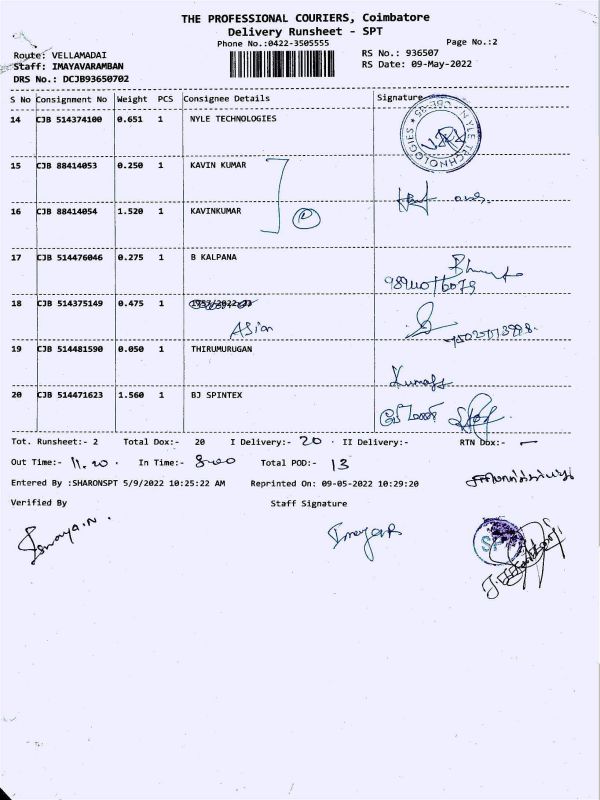 THE PROFESSIONAL COURIERS, Coimbatore
Delivery Runsheet - SPT
Phone No.:0422-3505555 Page No.:2
Route: VELLAMADAI RS No.: 936507
Staff: IMAYAVARAMBAN RS Date: 09-May-2022
DRS No.: DCJB93650702
S No Consignment No Weight PCS Consignee Details Signature
14 CJB 514374100 0.651 1 NYLE TECHNOLOGIES
NYLE TECHNOLOGIES
15 CJB 88414053 0.250 1 KAVIN KUMAR
16 CJB 88414054 1.520 1 KAVINKUMAR
17 CJB 514476046 0.275 1 B KALPANA
18 CJB 514375149 0.475 1
Asian
19 CJB 514481590 0.050 1 THIRUMURUGAN
20 CJB 514471623 1.560 1 BJ SPINTEX
Tot. Runsheet:- 2 Total Dox:- 20 I Delivery:- 20 . II Delivery:- RTN Dox:- —
Out Time:- 11.20 . In Time:- 8.00 Total POD:- 13
Entered By :SHARONSPT 5/9/2022 10:25:22 AM Reprinted On: 09-05-2022 10:29:20
Verified By Staff Signature
SPT